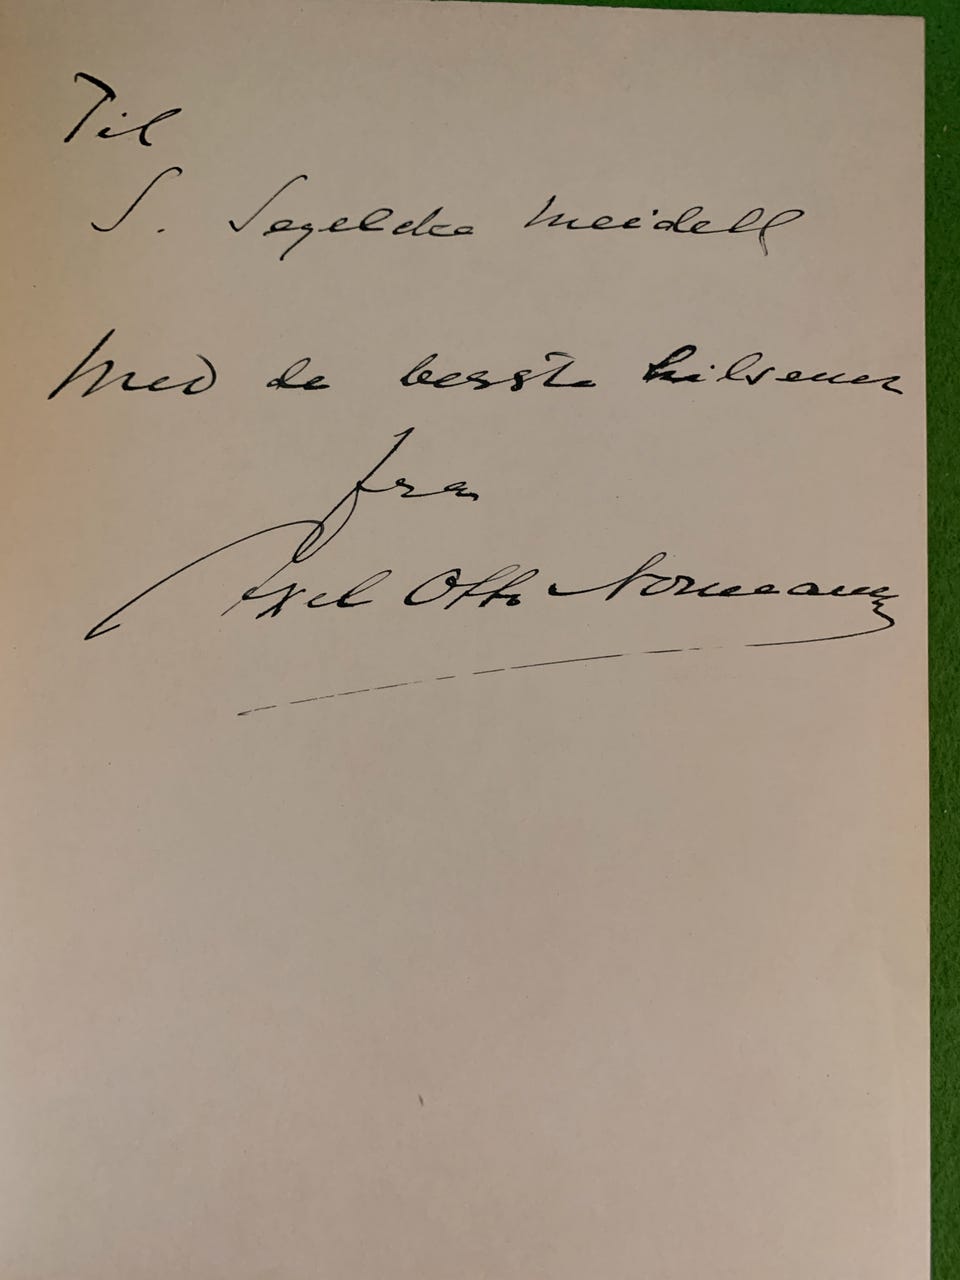 Til
S. Segelcke Meidell
Med de beste hilsener
fra
Axel Otto Normann